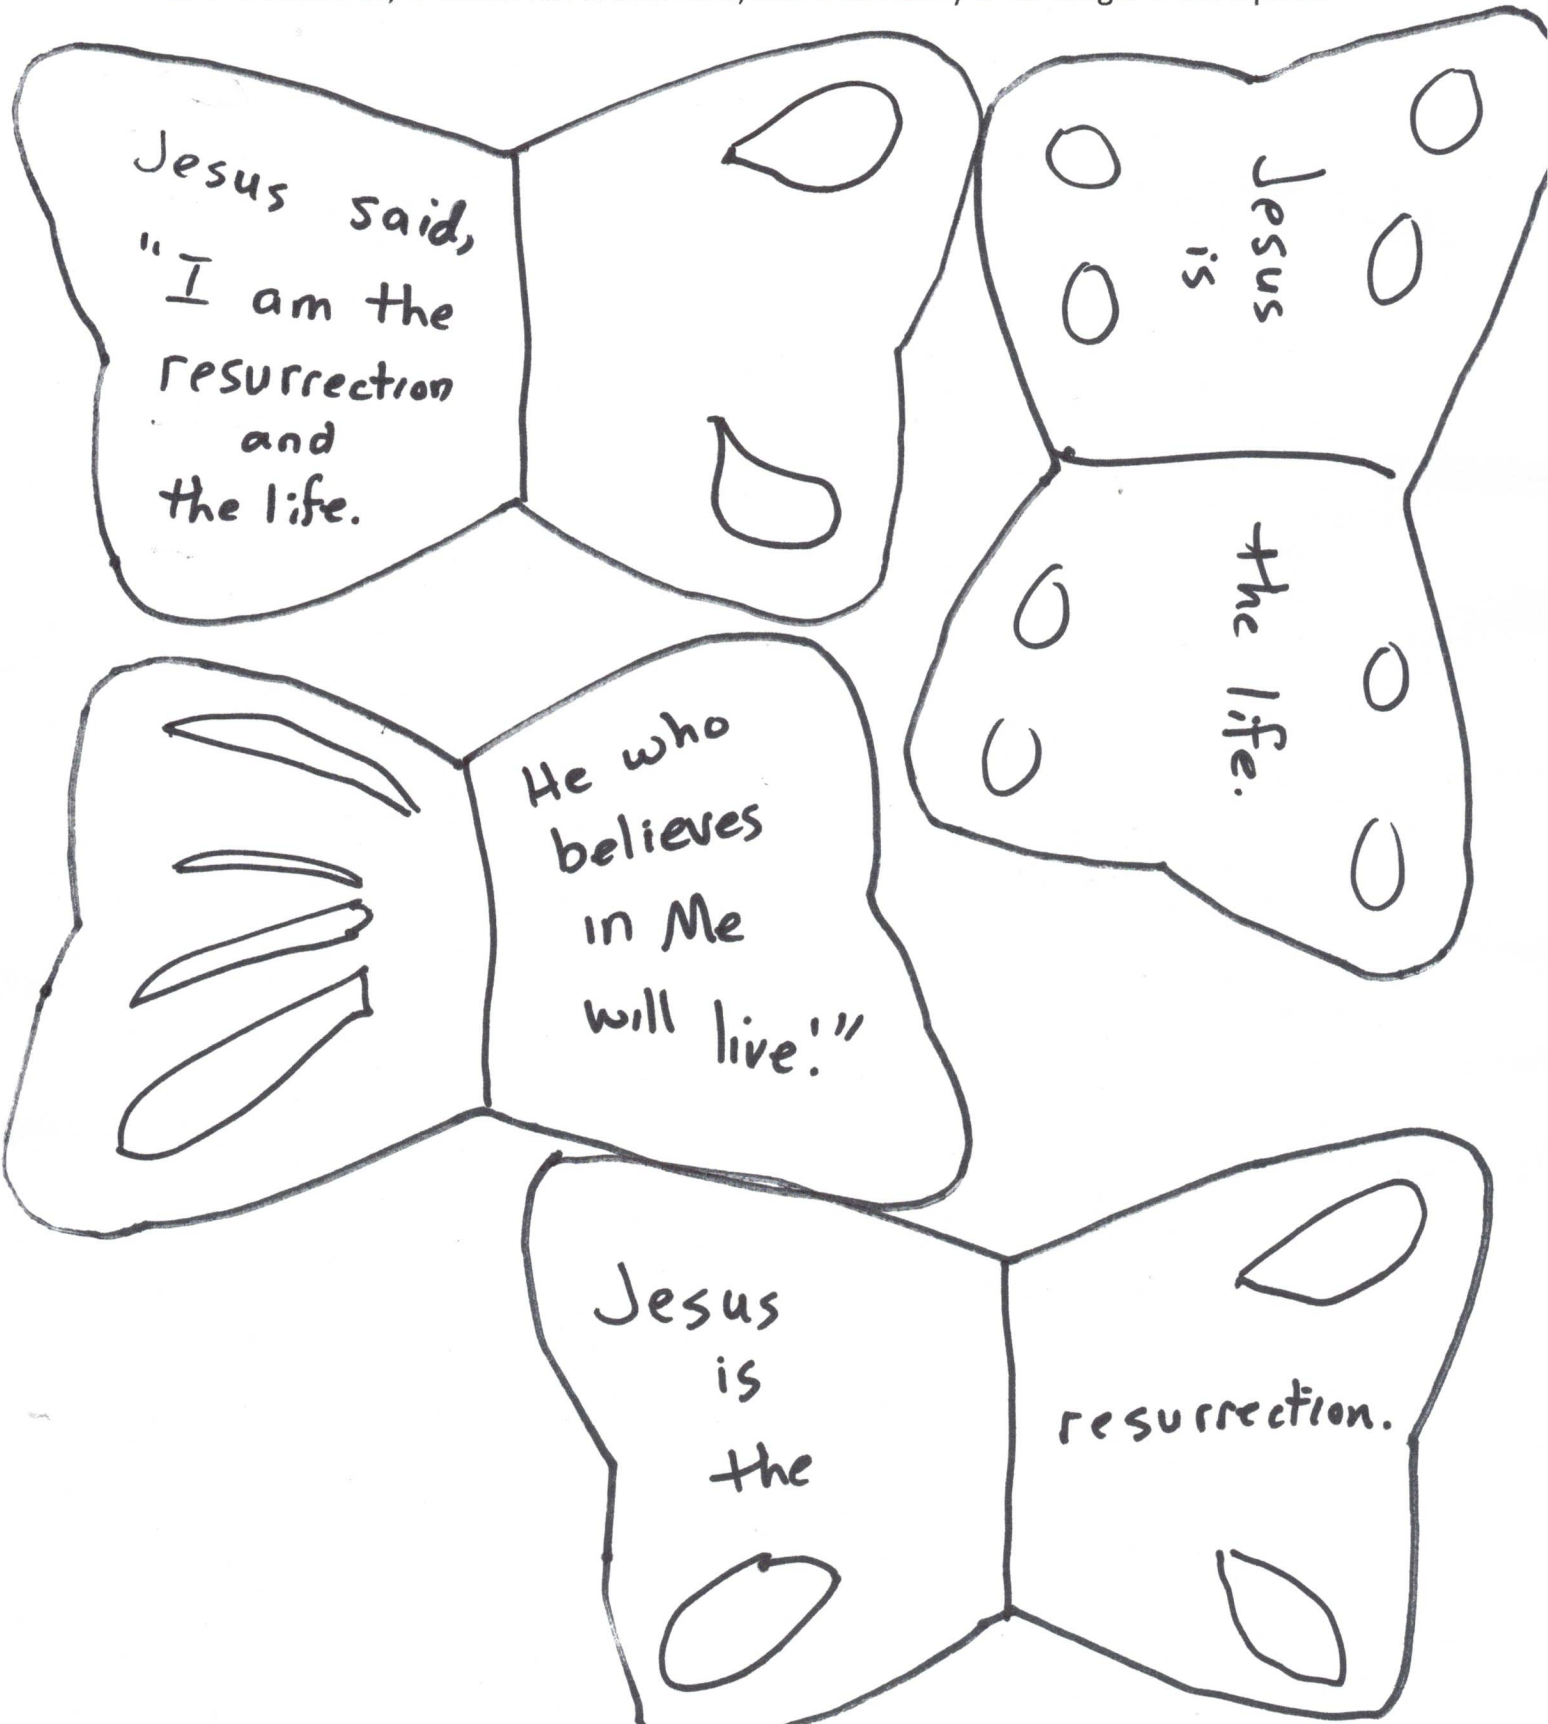 Jesus said,
"I am the
resurrection
and
the life.
Jesus
is
the life.
He who
believes
in Me
will live!"
Jesus
is
the
resurrection.